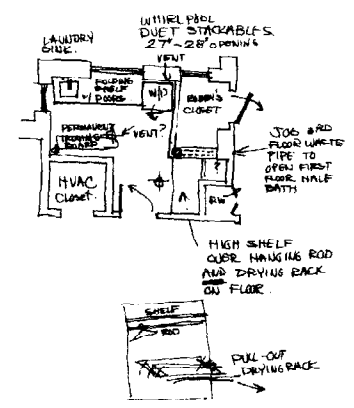 WHIRLPOOL
DUET STACKABLES.
27"-28" OPENING
LAUNDRY
SINK.
VENT
FOLDING
SHELF
W/ DOORS
W/D
CLOSET
PERMANENT
BOARD
VENT?
HVAC
CLOSET.
A
?
JOG 3RD
FLOOR WASTE
PIPE TO
OPEN FIRST
FLOOR HALF
BATH
HIGH SHELF
OVER HANGING ROD
AND DRYING RACK
ON FLOOR.
SHELF
ROD
PULL-OUT
DRYING RACK